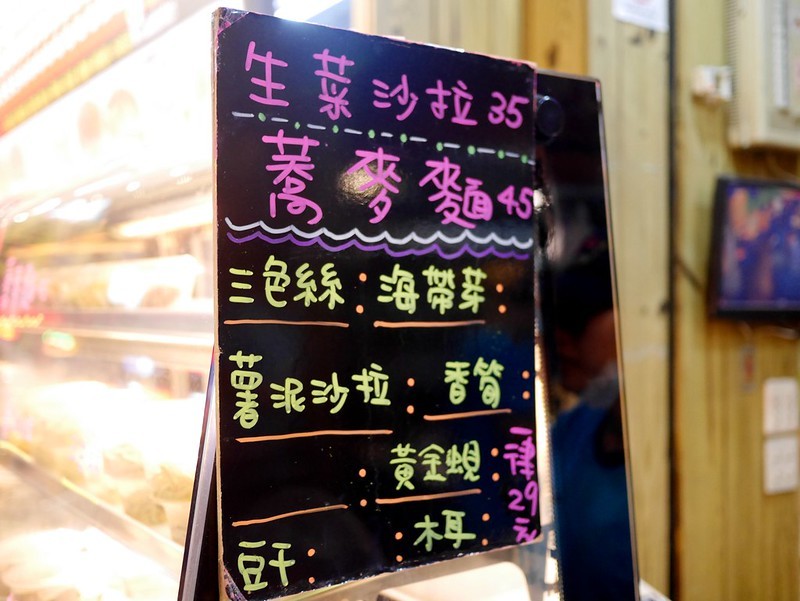 生菜沙拉 35
蕎麥麵 45
三色絲： 海帶芽：
薯泥沙拉： 香筍：
： 黃金蜆：
豆干： ： 木耳：
一律29元